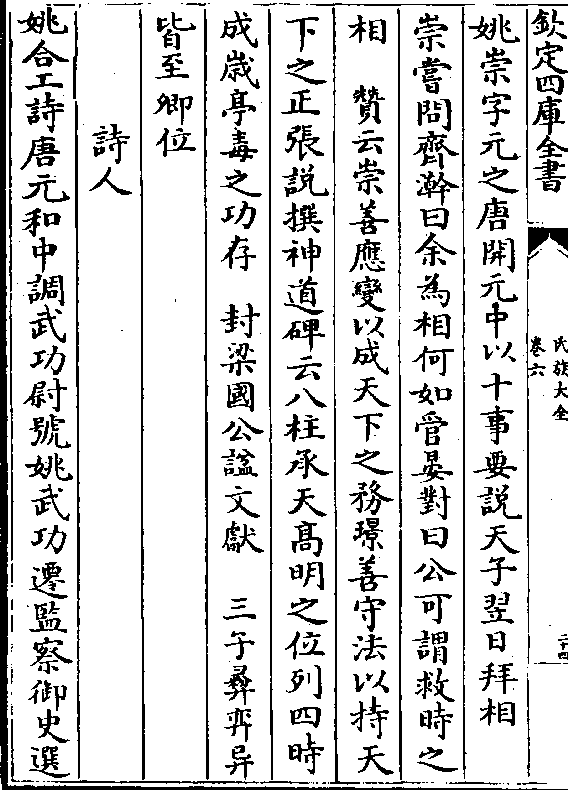 欽定四庫全書
氏族大全
卷六
二十四
姚崇字元之唐開元中以十事要說天子翌日拜相
崇嘗問齊澣曰余為相何如管晏對曰公可謂救時之
相　贊云崇善應變以成天下之務璟善守法以持天
下之正張說撰神道碑云八柱承天高明之位列四時
成歳亭毒之功存　封梁國公諡文獻　三子彞弈异
皆至卿位
詩人
姚合工詩唐元和中調武功尉號姚武功遷監察御史選